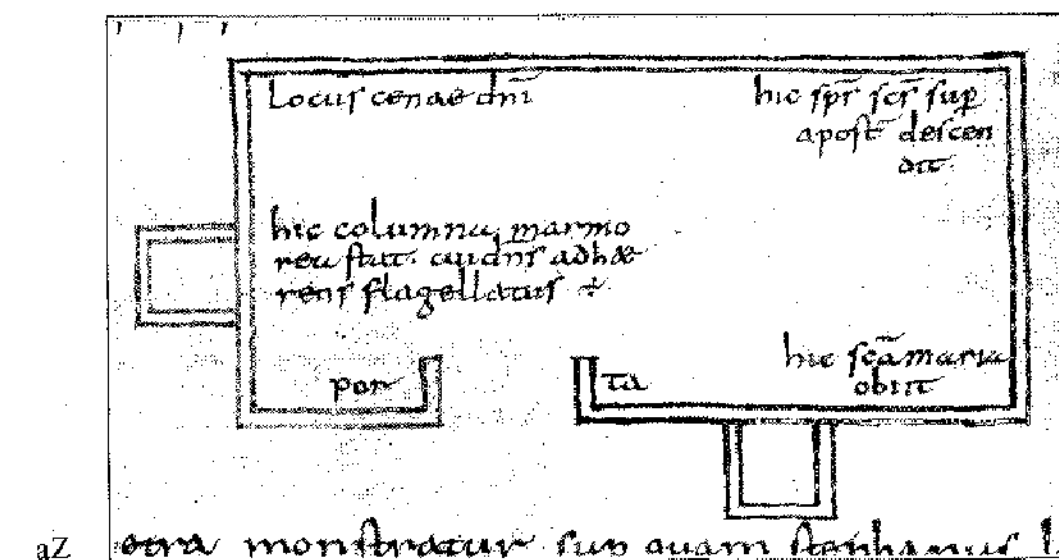 Locus cenae dnī
hic spr̄ scs̄ sup̄
apost̄ descen
dit
hic columna marmo
rea stat. cui dn̄s adhæ
rens flagellatus ÷
hic scā maria
obiit
por
ta
aZ
petra monstratur sup quam stephanus